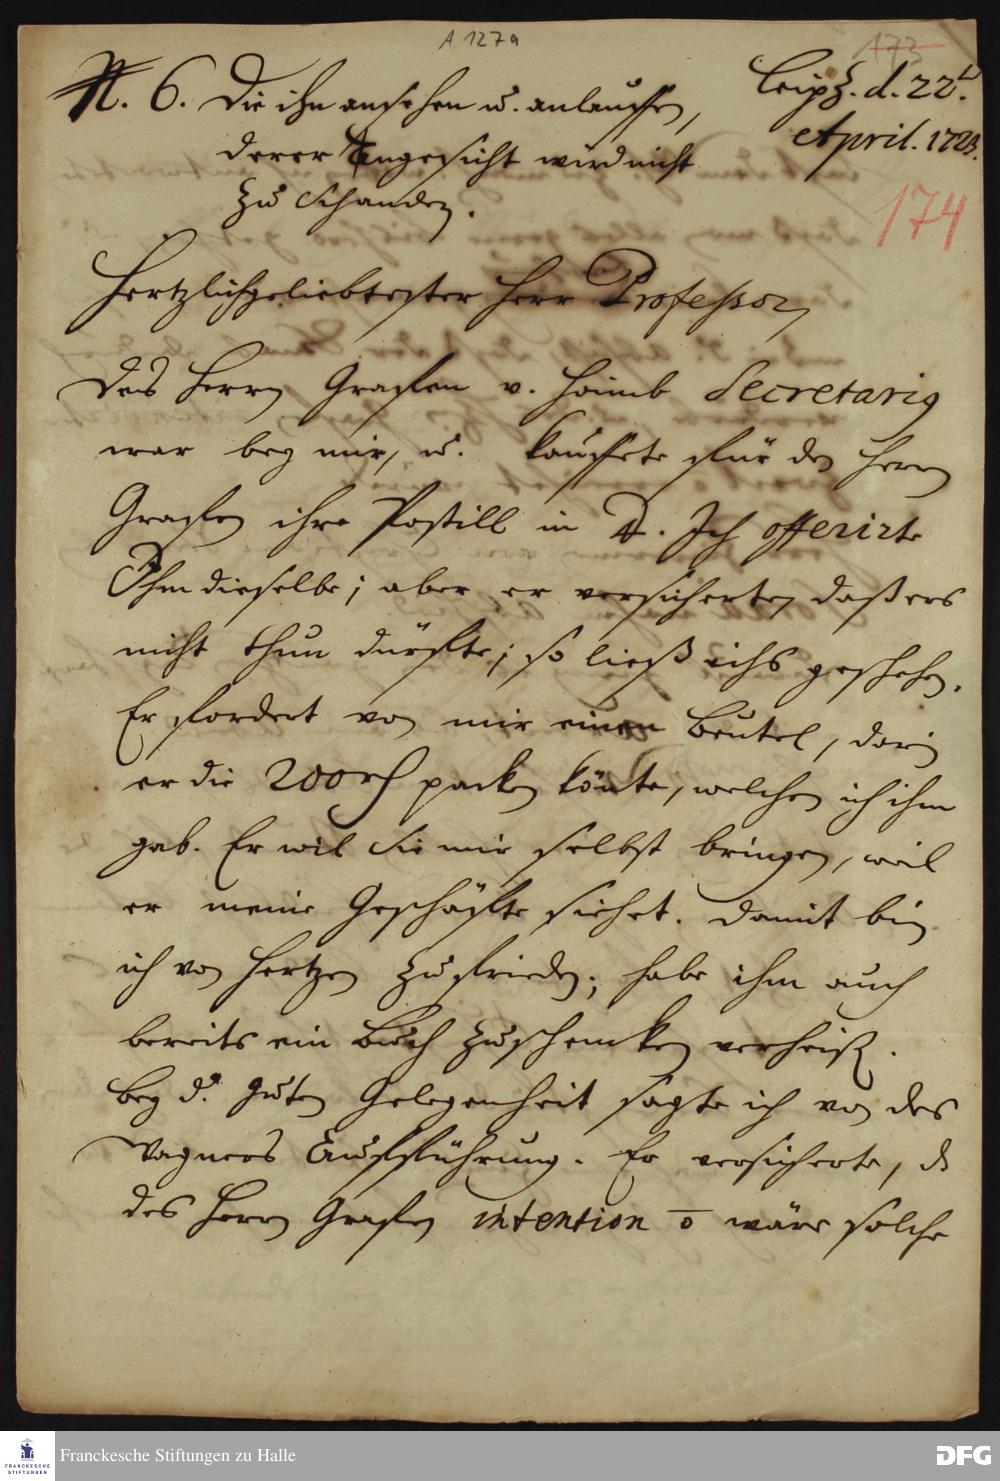 A 127a
173
N. 6. Die ihn ansehen u. anlauffen,
derer Angesicht wird nicht
zu Schanden.
Leipz. d. 22t.
April. 1723.
174
Hertzlichgeliebtester Herr Professor,
Des Herrn Graffen v. Hoimb Secretarig
war bey mir, u. kauffete für den Herrn
Graffen ihre Postill in 4. Ich offerirte
Ihm dieselbe; aber er versicherte, daß ers
nicht thun dürffte; so ließ ichs geschehen.
Er fordert von mir einen Beutel, darin
er die 200 rh packen könte, welchen ich ihm
gab. Er wil sie mir selbst bringen, weil
er meine Geschäffte siehet. Damit bin
ich von Hertzen zufrieden; habe ihm auch
bereits ein Buch zuschencken verheiß.
Bey d. guten Gelegenheit sagte ich von des
Wagners Aufführung. Er versicherte, dz
des Herrn Graffen intention ō wäre solche
Franckesche Stiftungen zu Halle
FRANCKESCHE
STIFTUNGEN
DFG